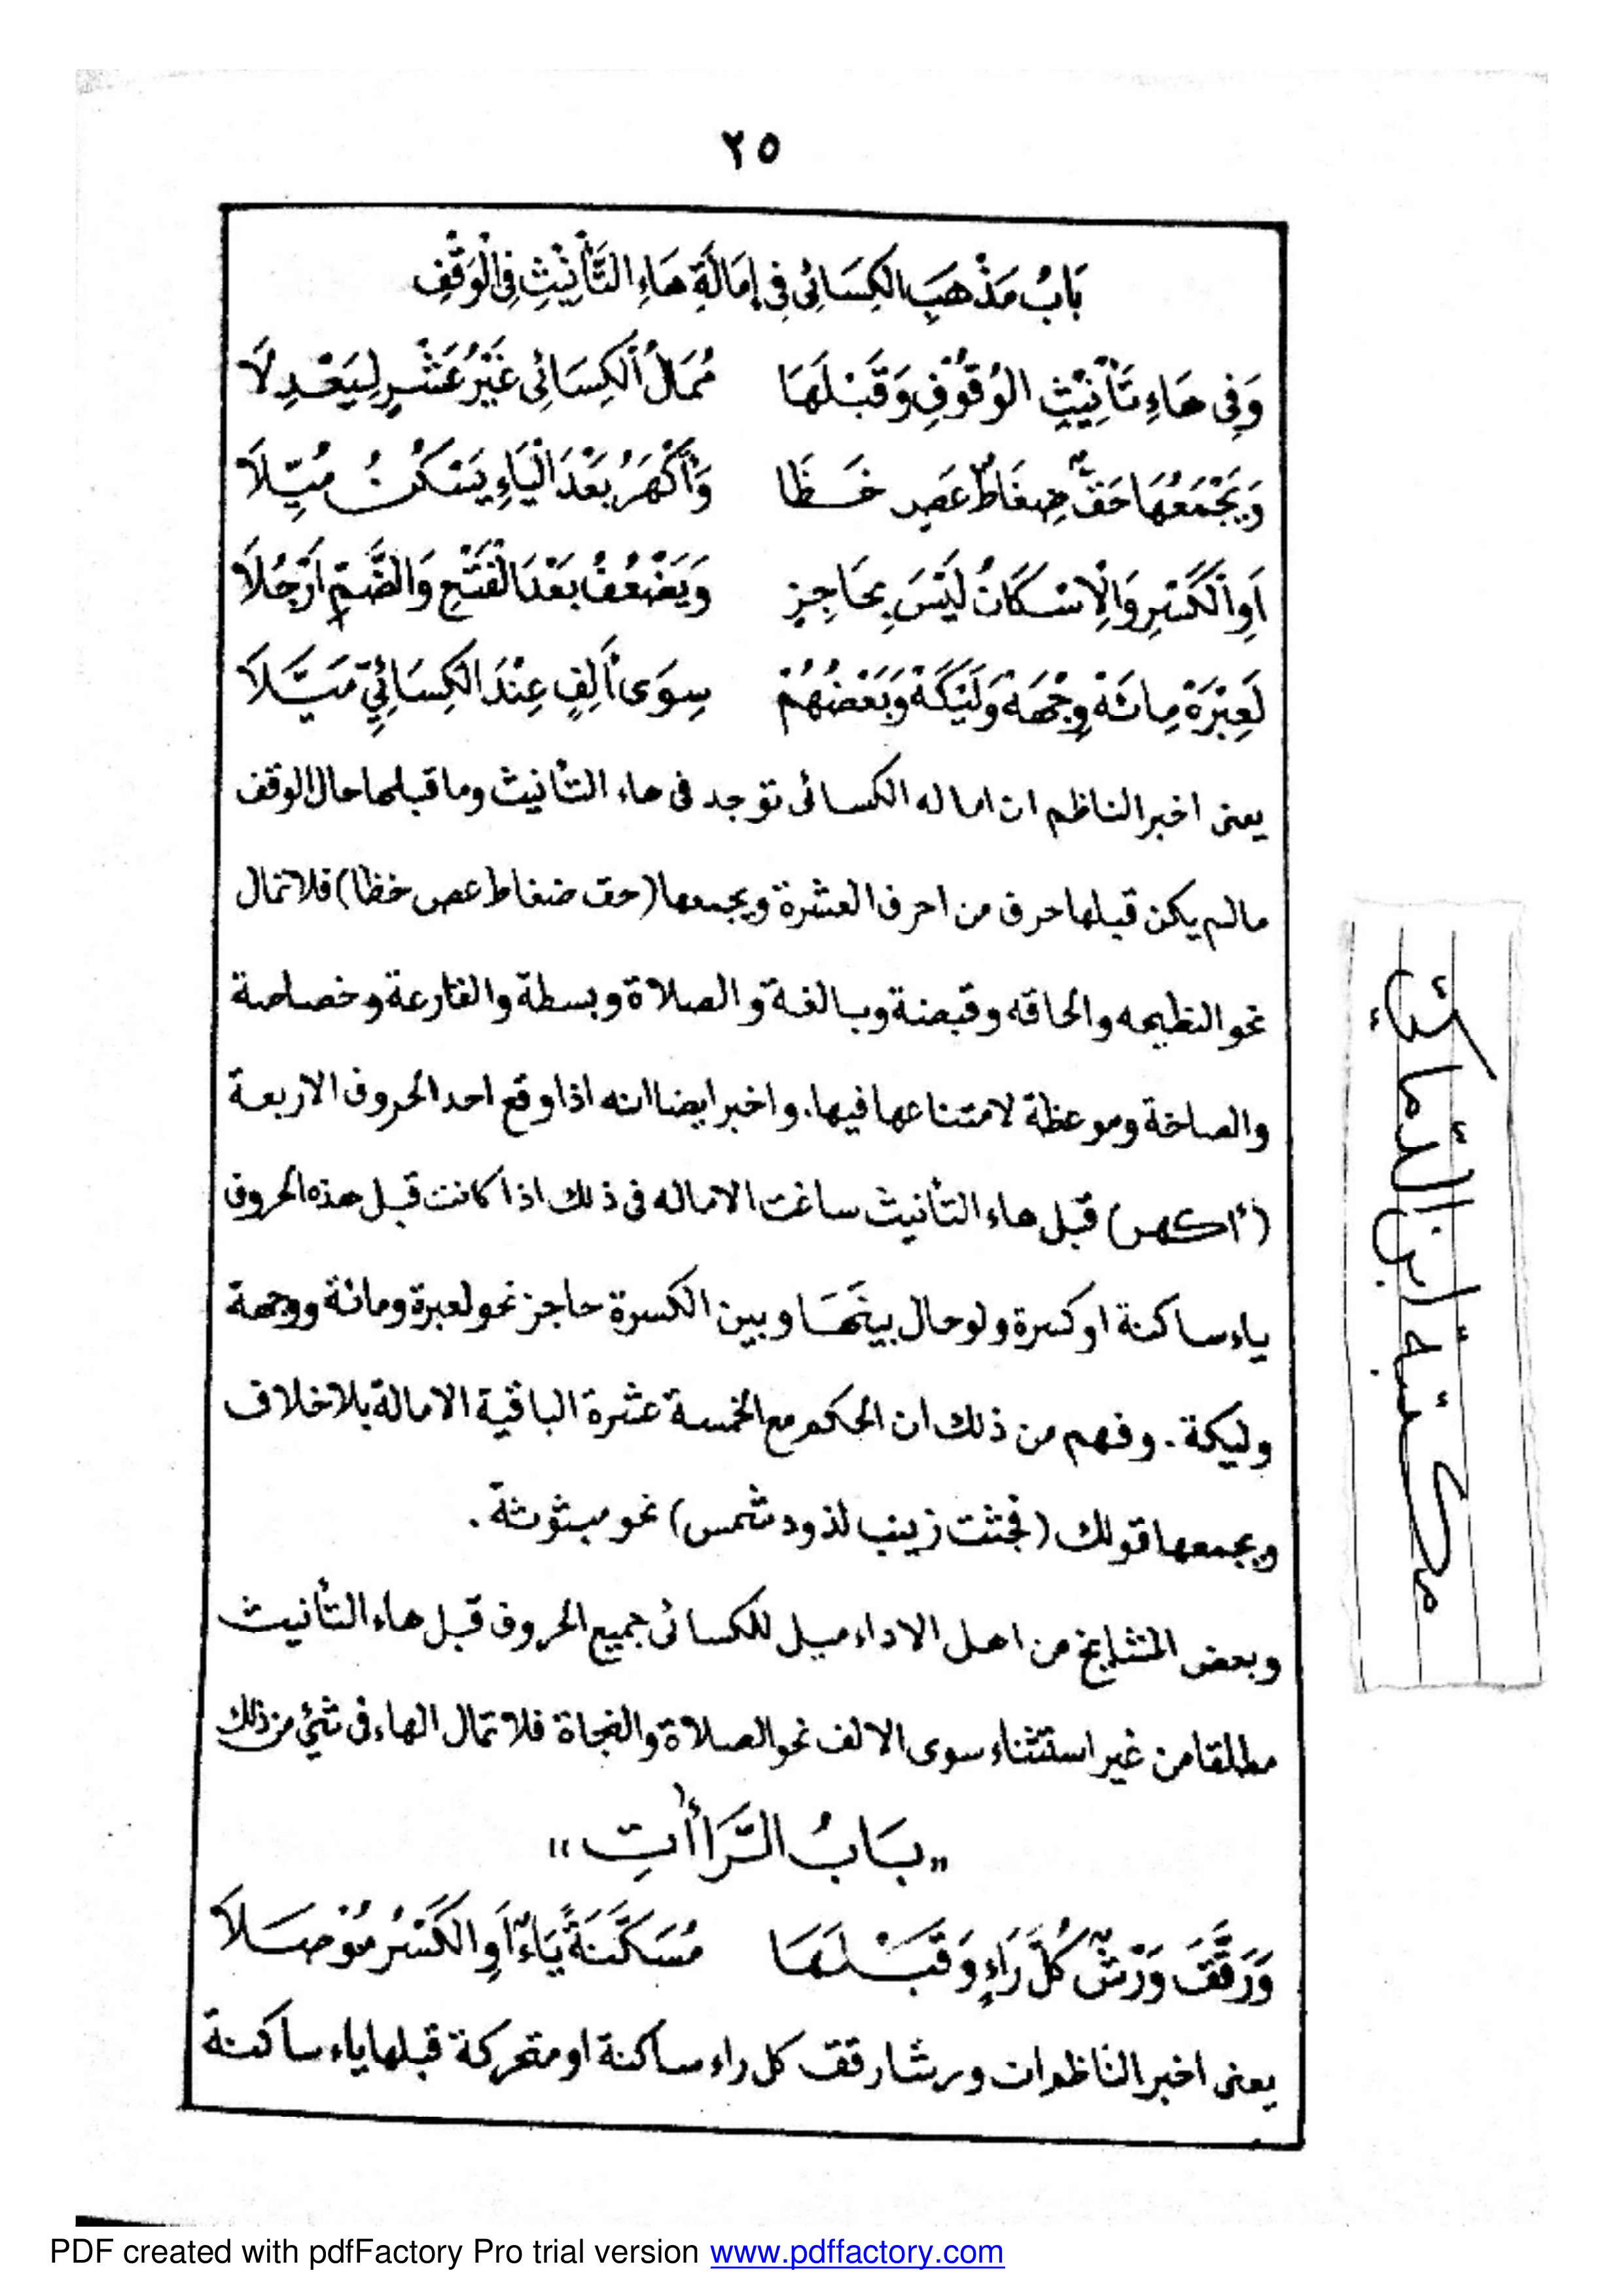 ٢٥
بَابُ مَذْهَبِ الكِسَائِى فِى إِمَالَةِ هَاءِ التَّأْنِيْثِ فِى الْوَقْفِ
وَفِى هَاءِ تَأْنِيْثِ الوُقُوْفِ وَقَبْلَهَا مُمَالُ الْكِسَائِى غَيْرُ عَشْرٍ لِيَعْدِلَا
وَيَجْمَعُهَا حَقٌّ ضِغَاطٌ عَصٍ خَظَا وَأَكْهَرُ بَعْدَ الْيَاءِ يَسْكُنُ مُيِّلَا
اَوِ الْكَسْرِ وَالْاِسْكَانُ لَيْسَ بِحَاجِزٍ وَيَضْعُفُ بَعْدَ الْفَتْحِ وَالضَّمِّ اَرْجُلَا
لَعِبْرَةْ مِائَةْ وِجْهَةْ وَلَيْكَةْ وَبَعْضُهُمْ سِوَى أَلِفٍ عِنْدَ الكِسَائِيِّ مَيَّلَا
يعنى اخبر الناظم ان اماله الكسائى توجد فى هاء التأنيث وما قبلها حال الوقف
مالم يكن قبلها حرف من احرف العشرة ويجمعها (حق ضغاط عص خظا) فلا تمال
نحو النطيحه والحاقه وقبضة وبالغة والصلاة وبسطة والقارعة وخصاصة
والصاخة وموعظة لامتناعها فيها. واخبر ايضا انه اذا وقع احد الحروف الاربعة
(أكهر) قبل هاء التأنيث ساغت الاماله فى ذلك اذا كانت قبل هذه الحروف
ياء ساكنة اوكسرة ولوحال بينَهَا وبين الكسرة حاجز نحو لعبرة ومائة ووجهة
وليكة. وفهم من ذلك ان الحكم مع الخمسة عشرة الباقية الامالة بلا خلاف
ويجمعها قولك (فجثت زينب لذود شمس) نحو مبثوثة.
وبعض المشايخ من اهل الاداء ميل للكسائى جميع الحروف قبل هاء التأنيث
مطلقا من غير استثناء سوى الالف نحو الصلاة والنجاة فلا تمال الهاء فى شئ من ذلك
"بَابُ الرَّاأَاتِ"
وَرَقَّقَ وَرْشٌ كُلَّ رَاءٍ وَقَبْلَهَا مُسَكَّنَةً يَاءٌ اَوِ الكَسْرُ مُوْصَلَا
يعنى اخبر الناظم ان ورشا رقق كل راء ساكنة او متحركة قبلها ياء ساكنة
مكتبة ابن
PDF created with pdfFactory Pro trial version www.pdffactory.com